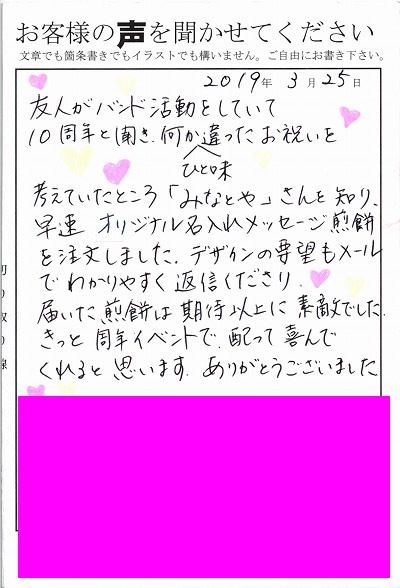 お客様の声を聞かせてください
文章でも箇条書きでもイラストでも構いません。ご自由にお書き下さい。
2019年 3月25日
友人がバンド活動をしていて
10周年と聞き、何か違ったお祝いを
ひと味
考えていたところ「みなとや」さんを知り、
早速 オリジナル名入れメッセージ煎餅
を注文しました。デザインの要望もメール
でわかりやすく返信くださり、
届いた煎餅は期待以上に素敵でした。
きっと周年イベントで、配って喜んで
くれると思います。ありがとうございました